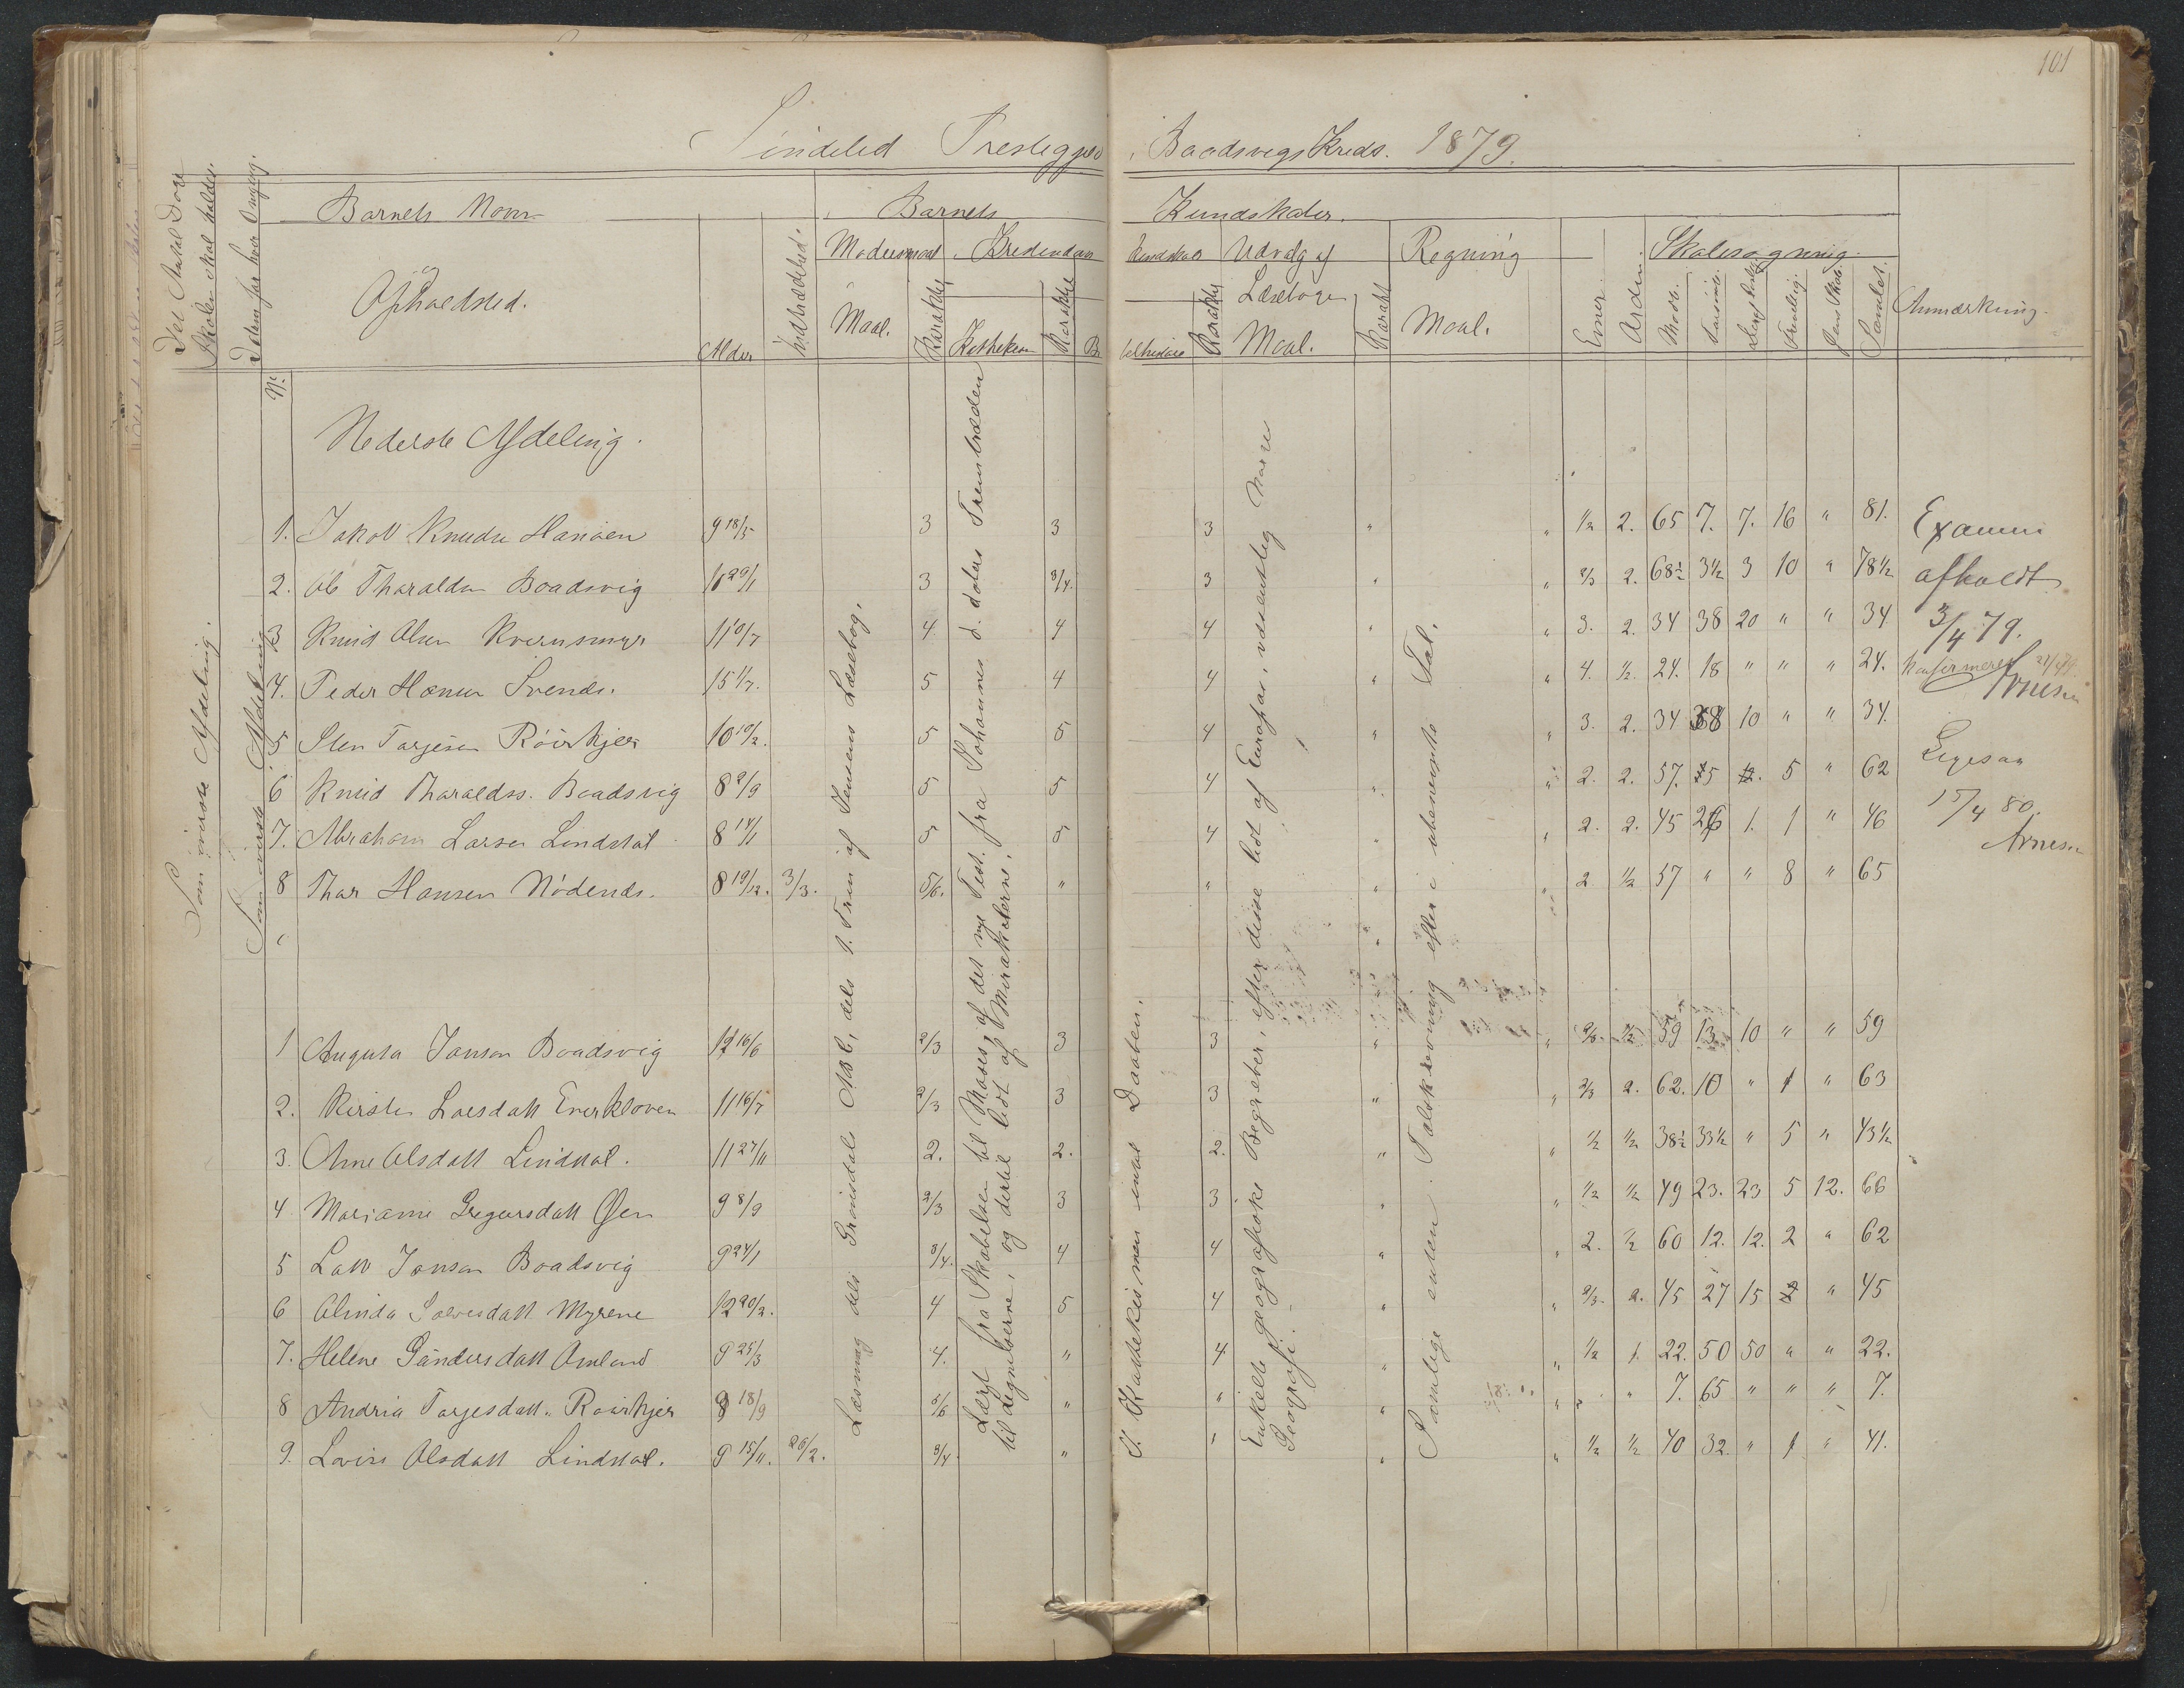 101
Söndeled Prestegjeld, Baadsvigs Kreds. 1879.
Det Antal Dage
Skolen skal holdes.
Barnets Navn
Opholdsted.
Alder
Indtrædelsestid.
Barnets Kundskaber.
Modersmaal
Maal.
Karakter
Kristendom
Karakter
Udvalg af
Læsebogen
Maal.
Karakt
Regning
Maal.
Evner.
Orden.
Skolesøgning.
Mødt.
Forsømt.
Frivillig.
Samlet.
Anmærkning.
No.
Nederste Afdeling.
1. Jakob Knudsen Hansen 9 18/5 3 3 3 " " 1/2 2. 65 7. 7. 16 " 81.
2. Ole Tharaldsen Baadsvig 10 29/1 3 3/4. 3 " " 2/3 2. 68½ 3½ 3 10 " 78½
3 Knud Olsen Kvernsmyr 11 10/7 4 4 4 " " 3. 2. 34 38 20 " " 34
4. Peder Hansen Svends. 15 1/7. 5 4 4 " " 4. 1/2. 24. 18 " " " 24.
5 Sten Tarjesen Röirkjer 10 10/2. 5 5 4 " " 3. 2. 34 38 10 " " 34.
6 Knud Tharaldss. Baadsvig 8 2/9 5 5 4 " " 2. 2. 57. 5 5 " 62
7. Abraham Larsen Lindstöl 8 14/1 5 5 4 " " 2. 2. 45 26 1. 1 " 46
8 Thor Hansen Nödends. 8 19/12. 3/3. 5/6. " " " " 2 1/2 57 " " 8 " 65
Examen
afholdt
3/4 79.
Konfirmeret
Arnesen
Ligesaa
15/4 80.
Arnesen
1 Augusta Jansen Baadsvig 12 16/6 2/3 3 3 " " 2/3. 59 13 10 " " 59
2. Kirsten Larsdatt Everkloven 11 16/7 2/3 3 3 " " 2/3 2. 62. 10 " 1 " 63
3. Anne Olsdatt Lindstøl. 11 27/11 2. 2. 2. " " 1/2 1/2 38½ 33½ " 5 " 43½
4 Mariane Gregersdatt Øen 9 8/9 2/3 3 3 " " 1/2 1/2 49 23. 23 5 12. 66
5 Jansen Baadsvig 9 24/1 3/4. 4 4 " " 2. 1/2 60 12. 12. 2 " 62
6 Olinda Salvesdatt Myrene 12 20/2. 4 5 4 " " 2/3. 2. 45 27 15 " 45
7. Helene Gundersdatt Omland 9 25/3 4. " 4 " " 1/2 1. 22. 50 50 " " 22.
8 Andrea Tarjesdatt. Röirkjer 9 18/9 5/6 " " " " " " 7. 65 " " " 7.
9. Lovise Olsdatt Lindstøl. 9 15/11. 26/2. 3/4 " " " " 1/2 1/2 40 32. " 1 " 41.
Som øverste Afdeling.
Som øverste Afdeling
Læsning dels Grønsdals dels 1. Trin af Jensens Læsebog.
Lært fra Skabelsen til Moses, af det nye Test. fra Johannes d. døbers Fremtræden
til Lignelserne, og dertil lidt af Miraklerne.
Katekismen indtil Daaben.
Enkelte geografiske Begreber, efter disse lidt af Europa, væsentlig Norges
Geografi.
Samtlige enten Talskrivning eller i ubenevnte Tal.